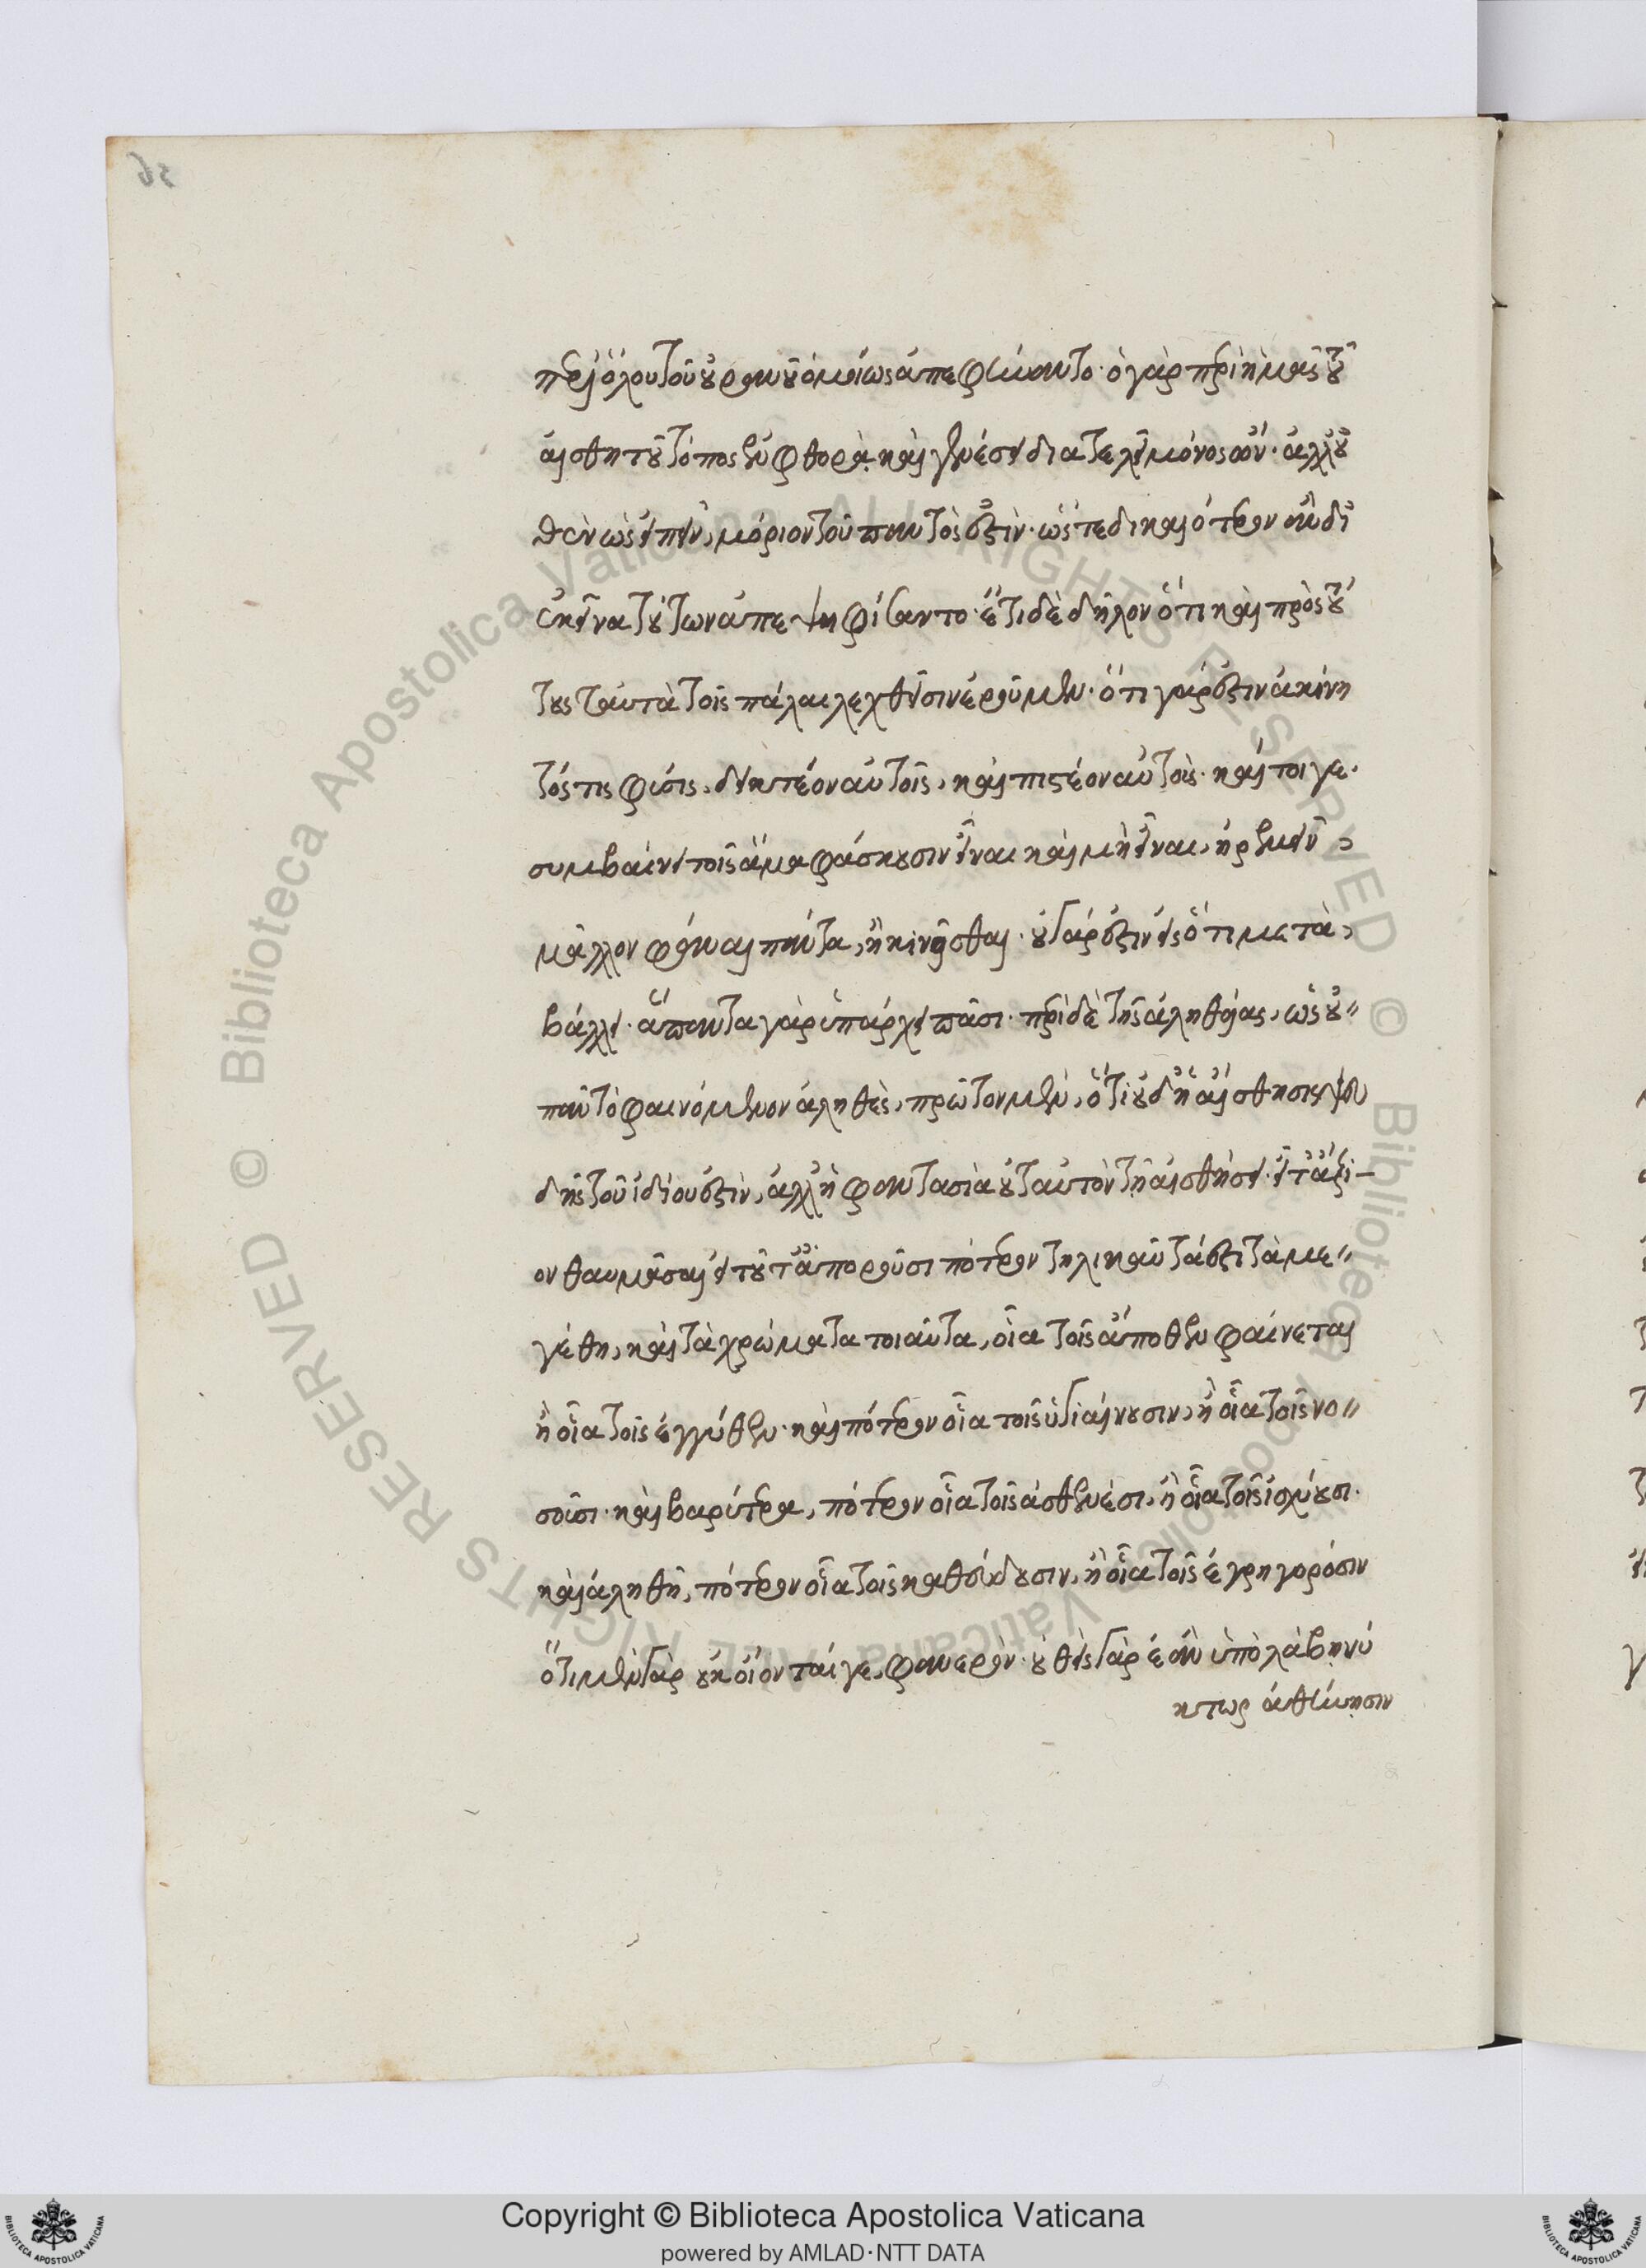 περὶ ὅλου τοῦ οὐρανοῦ ὁμοίως ἀπεφήναντο· ὁ γὰρ περὶ ἡμᾶς τοῦ
αἰσθητοῦ τόπος ἐν φθορᾷ καὶ γενέσει διατελεῖ μόνος ὤν· ἀλλ' οὐ
θὲν ὡς εἰπεῖν, μόριον τοῦ παντός ἐστιν· ὥστε δικαιότερον ἂν δι'
ἐκεῖνα τούτων ἀπεψηφίσαντο· ἔτι δὲ δῆλον ὅτι καὶ πρὸς τού
τους ταυτὰ τοῖς πάλαι λεχθεῖσιν ἐροῦμεν· ὅτι γάρ ἐστιν ἀκίνη
τός τις φύσις, δεικτέον αὐτοῖς, καὶ πιστέον αὐτοῖς· καί τοι γε·
συμβαίνει τοῖς ἅμα φάσκουσιν εἶναι καὶ μὴ εἶναι, ἠρεμεῖν,
μᾶλλον φάναι πάντα, ἢ κινεῖσθαι· οὐ γάρ ἐστιν εἰς ὅτι μετα,
βάλλει· ἅπαντα γὰρ ὑπάρχει πᾶσι· περὶ δὲ τῆς ἀληθείας, ὡς οὐ"
πᾶν τὸ φαινόμενον ἀληθές, πρῶτον μὲν, ὅτι οὐδ' ἡ αἴσθησις ψευ
δὴς τοῦ ἰδίου ἐστὶν, ἀλλ' ἡ φαντασία οὐ ταυτὸν τῇ αἰσθήσει· εἶτ' ἄξι-
ον θαυμάσαι εἰ τοῦτ' ἀποροῦσι πότερον τηλικαῦτά ἐστι τὰ με"
γέθη, καὶ τὰ χρώματα τοιαῦτα, οἷα τοῖς ἄποθεν φαίνεται
ἢ οἷα τοῖς ἐγγύθεν· καὶ πότερον οἷα τοῖς ὑγιαίνουσιν, ἢ οἷα τοῖς νο"
σοῦσι· καὶ βαρύτερα, πότερον οἷα τοῖς ἀσθενέσι, ἢ οἷα τοῖς ἰσχύουσι·
καὶ ἀληθῆ, πότερον οἷα τοῖς καθεύδουσιν, ἢ οἷα τοῖς ἐγρηγορόσιν
ὅτι μὲν γὰρ οὐκ οἴονταί γε, φανερόν· οὐθεὶς γὰρ ἐὰν ὑπολάβῃ νύ
κτωρ ἀθήνησιν
Copyright © Biblioteca Apostolica Vaticana
powered by AMLAD·NTT DATA